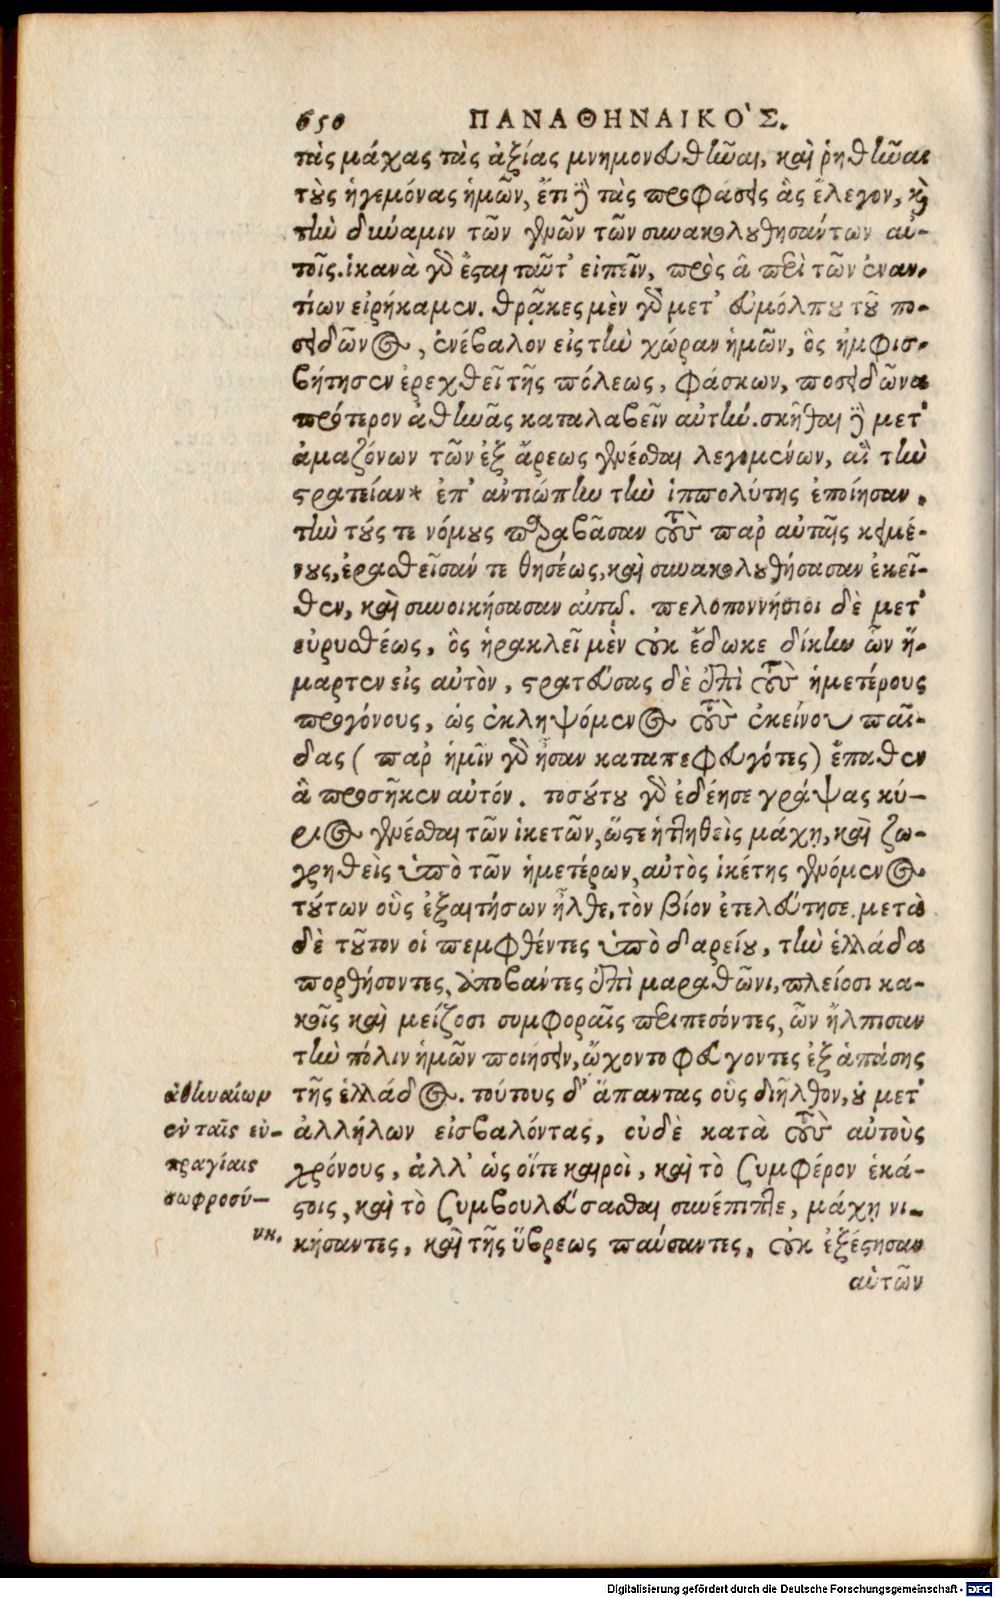 650 ΠΑΝΑΘΗΝΑΙΚΟ'Σ.
τὰς μάχας τὰς ἀξίας μνημονευθῆναι, καὶ ῥηθῆναι
τοὺς ἡγεμόνας ἡμῶν, ἔτι δὲ τὰς προφάσεις ἃς ἔλεγον, καὶ
τὴν δύναμιν τῶν γενῶν τῶν συνακολουθησάντων αὐ-
τοῖς. ἱκανὰ γὰρ ἔσται ταῦτ' εἰπεῖν, πρὸς ἃ περὶ τῶν ἐναν-
τίων εἰρήκαμεν. θρᾷκες μὲν γὰρ μετ' εὐμόλπου τοῦ πο-
σειδῶνος, ἐνέβαλον εἰς τὴν χώραν ἡμῶν, ὃς ἠμφισ-
βήτησεν ἐρεχθεῖ τῆς πόλεως, φάσκων, ποσειδῶνα
πρότερον ἀθηνᾶς καταλαβεῖν αὐτήν. σκῆθαι δὲ μετ'
ἀμαζόνων τῶν ἐξ ἄρεως γενέσθαι λεγομένων, αἳ τὴν
στρατείαν* ἐπ' ἀντιώπην τὴν ἱππολύτης ἐποίησαν,
τὴν τούς τε νόμους παραβᾶσαν τοὺς παρ αὐταῖς κειμέ-
νους, ἐρασθεῖσάν τε θησέως, καὶ συνακολουθήσασαν ἐκεῖ-
θεν, καὶ συνοικήσασαν αὐτῷ. πελοποννήσιοι δὲ μετ'
εὐρυσθέως, ὃς ἡρακλεῖ μὲν οὐκ ἔδωκε δίκην ὧν ἥ-
μαρτεν εἰς αὐτὸν, στρατεύσας δὲ ἐπὶ τοὺς ἡμετέρους
προγόνους, ὡς ἐκληψόμενος τοὺς ἐκείνου παῖ-
δας (παρ ἡμῖν γὰρ ἦσαν καταπεφευγότες) ἔπαθεν
ἃ προσῆκεν αὐτόν. τοσούτου γὰρ ἐδέησε γράψας κύ-
ριος γενέσθαι τῶν ἱκετῶν, ὥστε ἡττηθεὶς μάχῃ, καὶ ζω-
γρηθεὶς ὑπὸ τῶν ἡμετέρων, αὐτὸς ἱκέτης γενόμενος
τούτων οὓς ἐξαιτήσων ἦλθε, τὸν βίον ἐτελεύτησε. μετὰ
δὲ τοῦτον οἱ πεμφθέντες ὑπὸ δαρείου, τὴν ἑλλάδα
πορθήσοντες, ἀποβάντες ἐπὶ μαραθῶνι, πλείοσι κα-
κοῖς καὶ μείζοσι συμφοραῖς περιπεσόντες, ὧν ἤλπισαν
τὴν πόλιν ἡμῶν ποιήσειν, ᾤχοντο φεύγοντες ἐξ ἁπάσης
τῆς ἑλλάδος. τούτους δ' ἅπαντας οὓς διῆλθον, οὐ μετ'
ἀλλήλων εἰσβαλόντας, οὐδὲ κατὰ τοὺς αὐτοὺς
χρόνους, ἀλλ' ὡς οἵτε καιροὶ, καὶ τὸ ξυμφέρον ἑκά-
στοις, καὶ τὸ ξυμβουλεύσασθαι συνέπιπτε, μάχῃ νι-
κήσαντες, καὶ τῆς ὕβρεως παύσαντες, οὐκ ἐξέστησαν
αὑτῶν
ἀθηναίων
ἐν ταῖς εὐ-
πραγίαις
σωφροσύ-
νη.
Digitalisierung gefördert durch die Deutsche Forschungsgemeinschaft - DFG